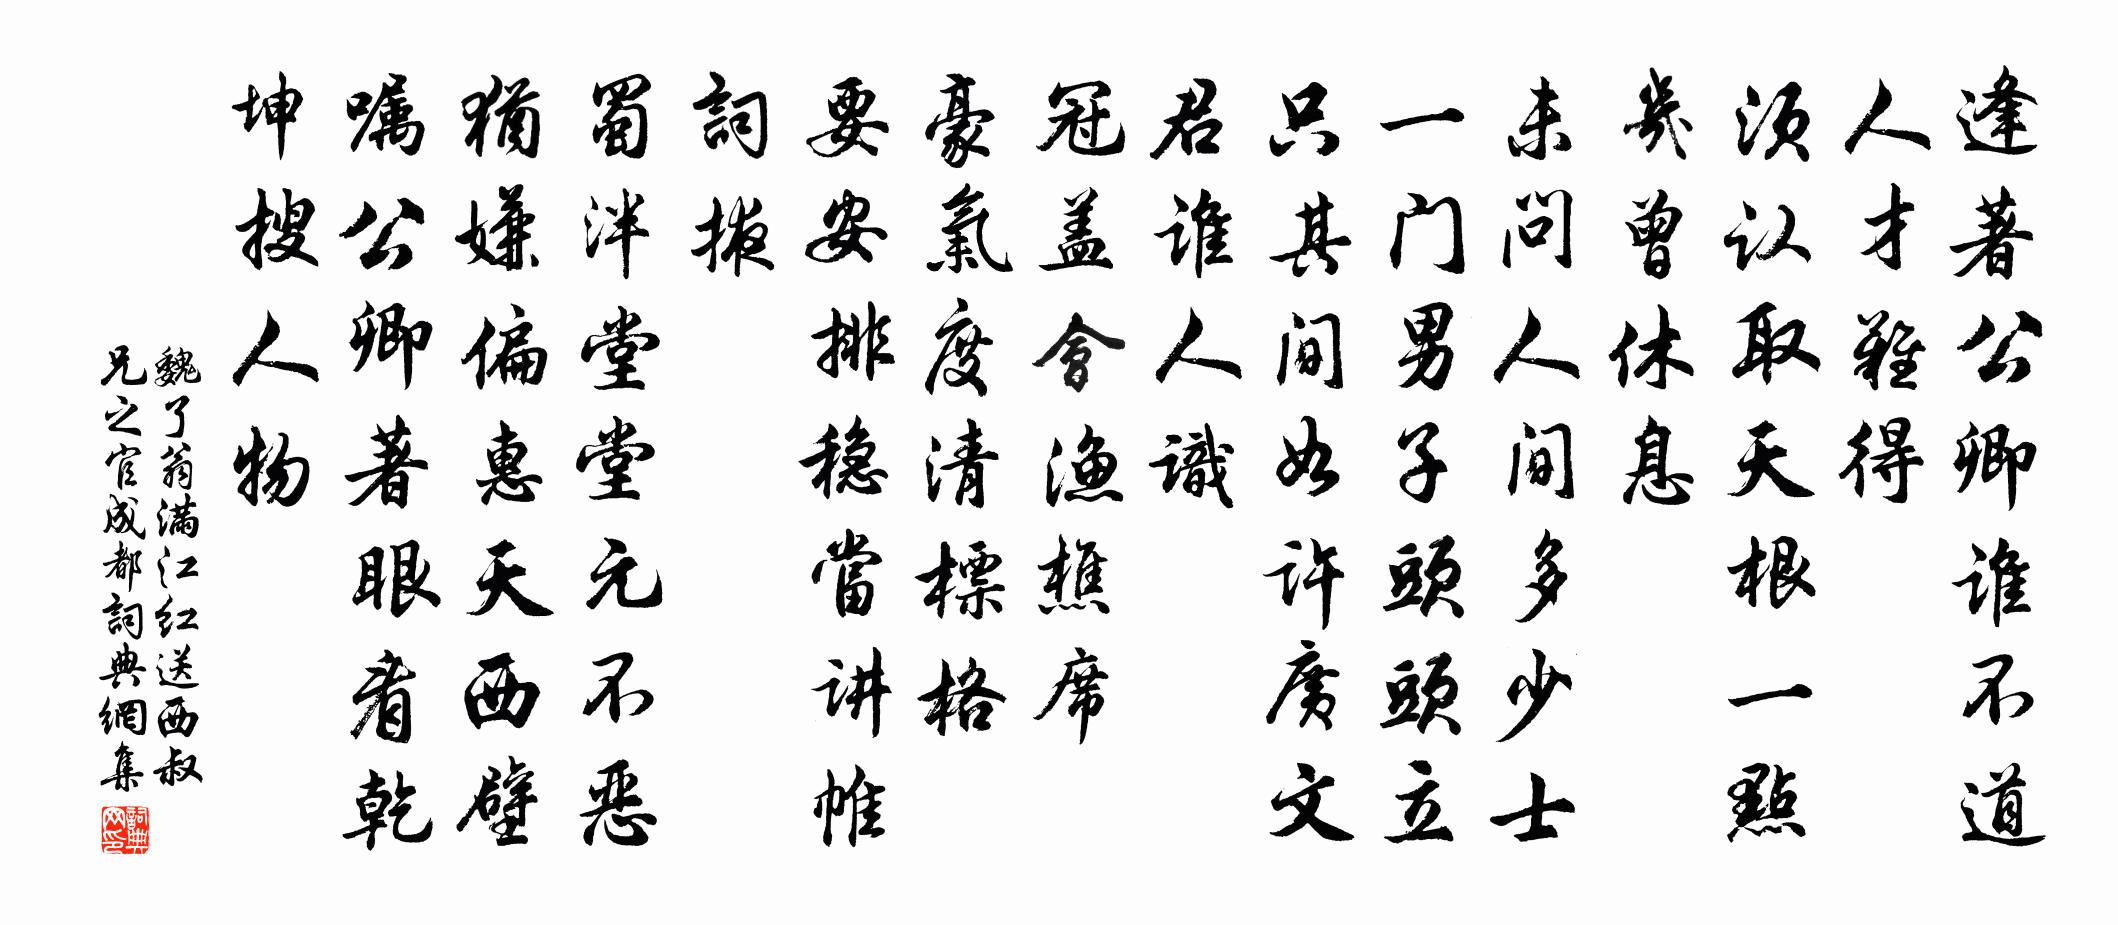 逢著公卿谁不道
人才難得
须认取天根一點
幾曾休息
未问人间多少士
一门男子頭頭立
只其间如许廣文
君谁人識
冠盖會漁樵席
豪氣度清標格
要安排稳當讲帷
詞掖
蜀泮堂堂元不恶
猶嫌偏惠天西壁
嘱公卿著眼看乾
坤搜人物
魏了翁满江红送西叔
兄之官成都詞典網集
詞典网印